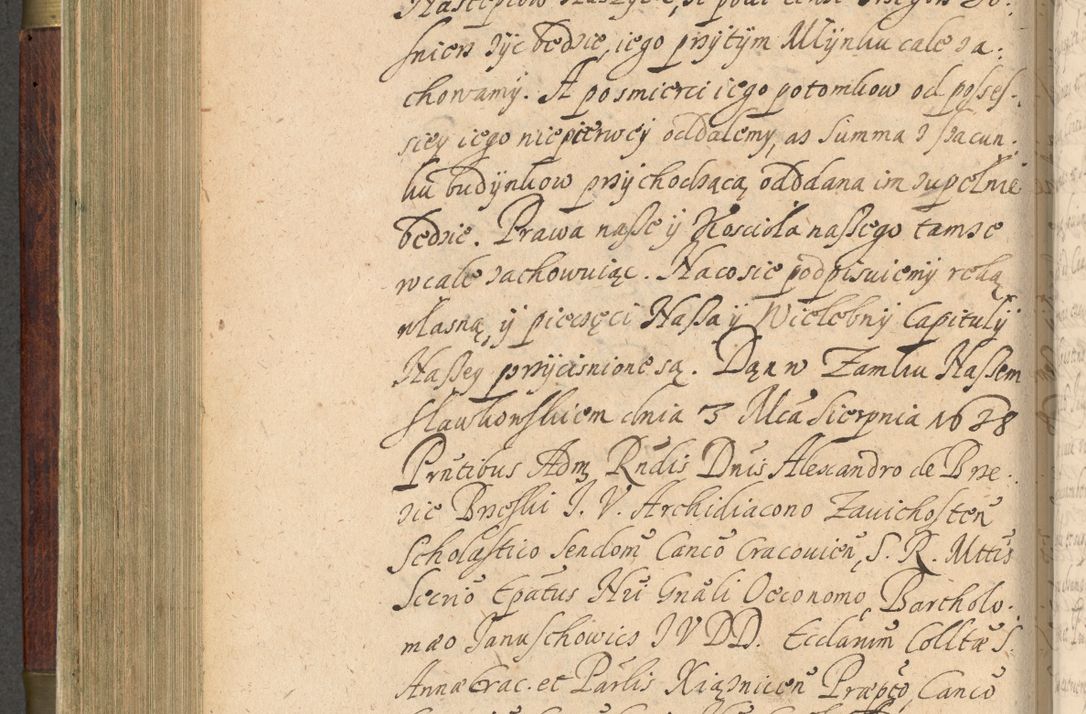 Następców Naszych, ze poki tenze Grzegorz Zo.
łnierz zyc będzie, iego przytym Młynku cale za.
chowamy. A po smierci iego potomkow od posses.
siey iego niepierwey oddalemy, as Summa z szacun.
ku budynkow przychodzaca, oddana im zupełnie
będzie. Prawa nasze y Koscioła naszego tamze
wcale zachowuiąc. Na co sie podpisuiemy ręką
własną, y pieczęci Nasza y Wielebny Capituły
Naszey przycisnione są. Dąn w Zamku Naszem
Sławkowskiem dnia 3 Mca Sierpnia 1638
Prntibus Adm Rndis Dnis Alexandro de Brze.
zie Brzeski J. V. Archidiacono Zavichosten
Scholastico Sendom Canco Cracovien, S. R. Mttis
Secrio Epatus Hui Gnali Oeconomo, Bartholo.
mæo Januschowicz I V D D. Ecclarum Colltæ S.
Annæ Crac. et Parlis Xiąznicen Præpto, Canco